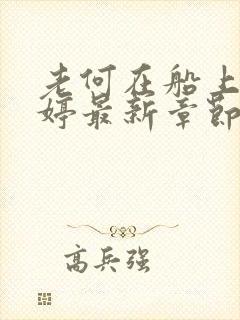 老何在船上
婷最新章节
高兵强